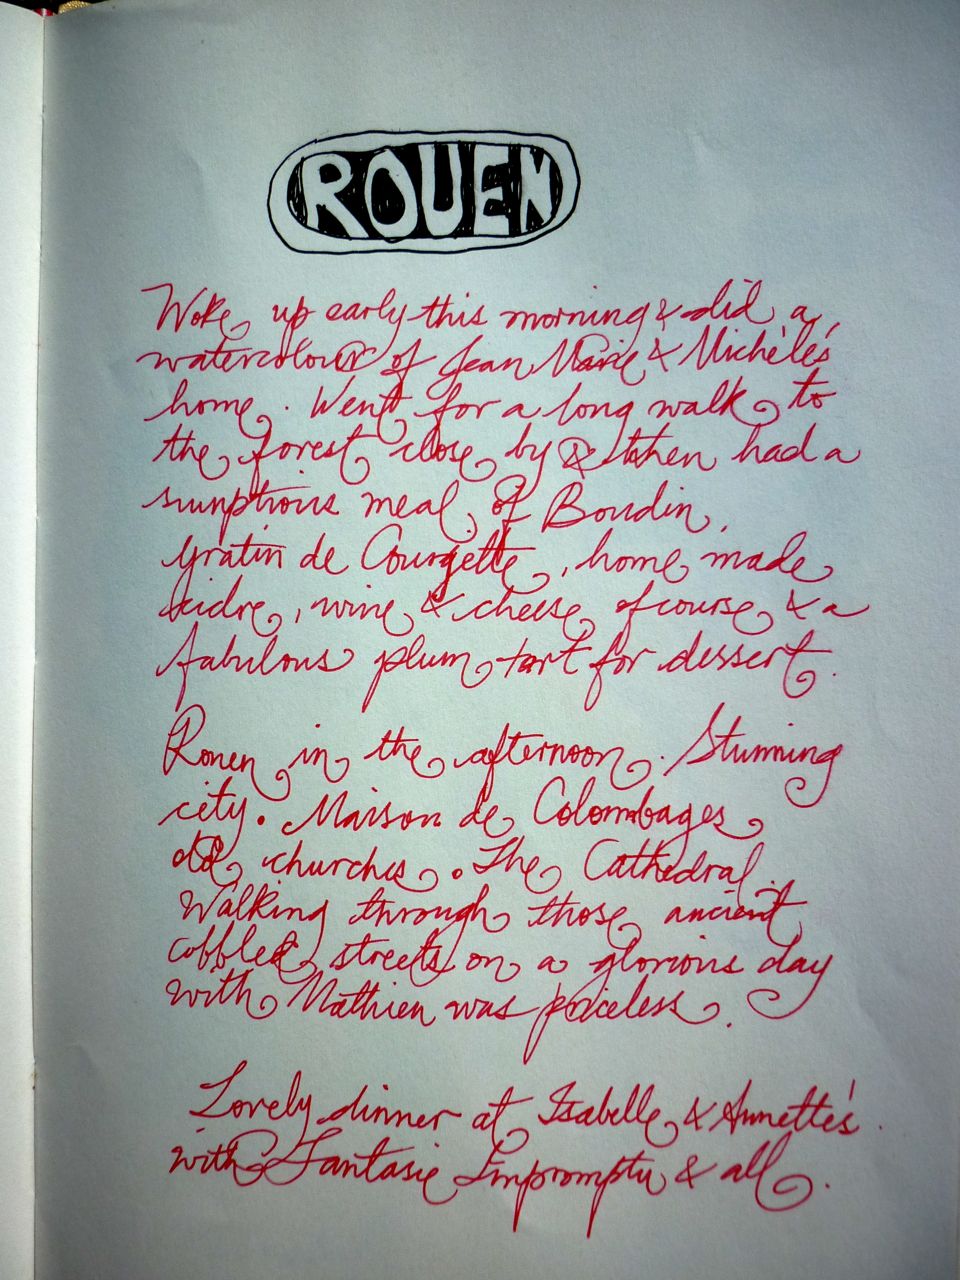 ROUEN
Woke up early this morning & did a
watercolour of Jean Marie & Michèle's
home. Went for a long walk to
the forest close by & then had a
sumptious meal of Boudin,
gratin de Courgette, home made
cidre, wine & cheese of course & a
fabulous plum tart for dessert.
Rouen in the afternoon. Stunning
city. Maison de Colombages
old churches. The Cathedral.
Walking through those ancient
cobbled streets on a glorious day
with Mathieu was priceless.
Lovely dinner at Isabelle & Annette's.
with Fantasie Impromptu & all.